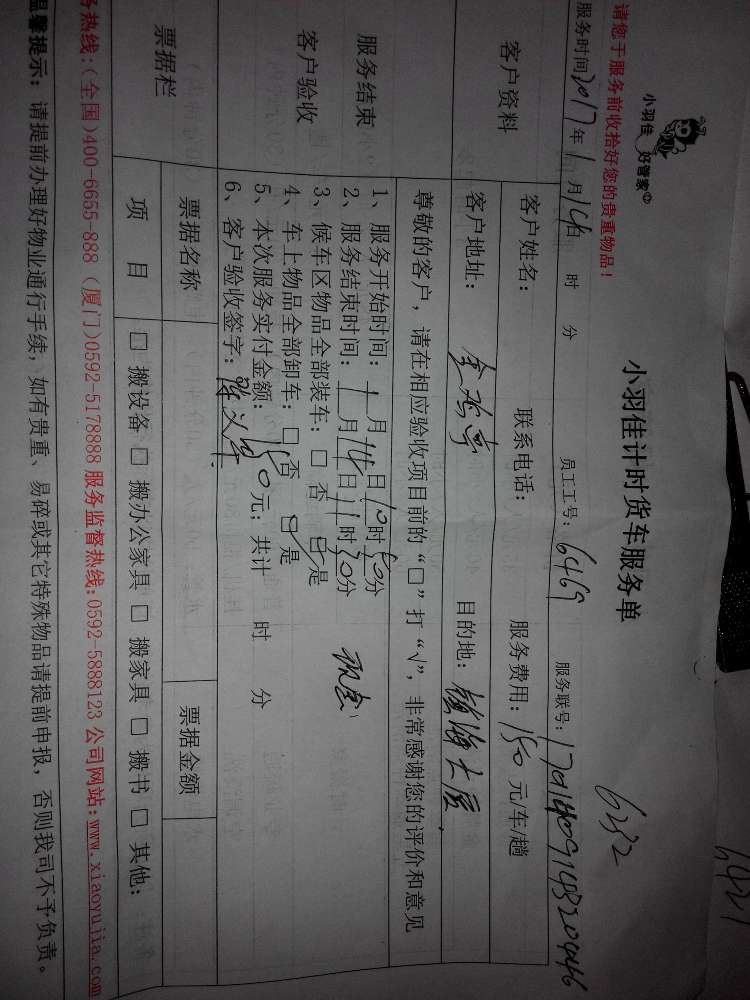 小羽佳 好管家
请您于服务前收拾好您的贵重物品！
小羽佳计时货车服务单
6232
6421
服务时间2017年1月14日 时 分 员工工号：6469 服务联号：
客户资料
客户姓名： 联系电话： 服务费用：150元/车/趟
客户地址： 目的地：
尊敬的客户，请在相应验收项目前的“□”打“√”，非常感谢您的评价和意见
服务结束
客户验收
1、服务开始时间：1月14日10时50分
2、服务结束时间：1月14日11时30分
3、候车区物品全部装车：□ 否 ☑是
4、车上物品全部卸车：□ 否 ☑是
5、本次服务实付金额：150元；共计 时 分
6、客户验收签字：
现金
票据栏
票据名称 票据金额
项 目 □ 搬设备 □ 搬办公家具 □ 搬家具 □ 搬书 □ 其他：
务热线：(全国)400-6655-888 (厦门)0592-5178888 服务监督热线：0592-5888123 公司网站：www.xiaoyujia.com
温馨提示：请提前办理好物业通行手续，如有贵重、易碎或其它特殊物品请提前申报，否则我司不予负责。